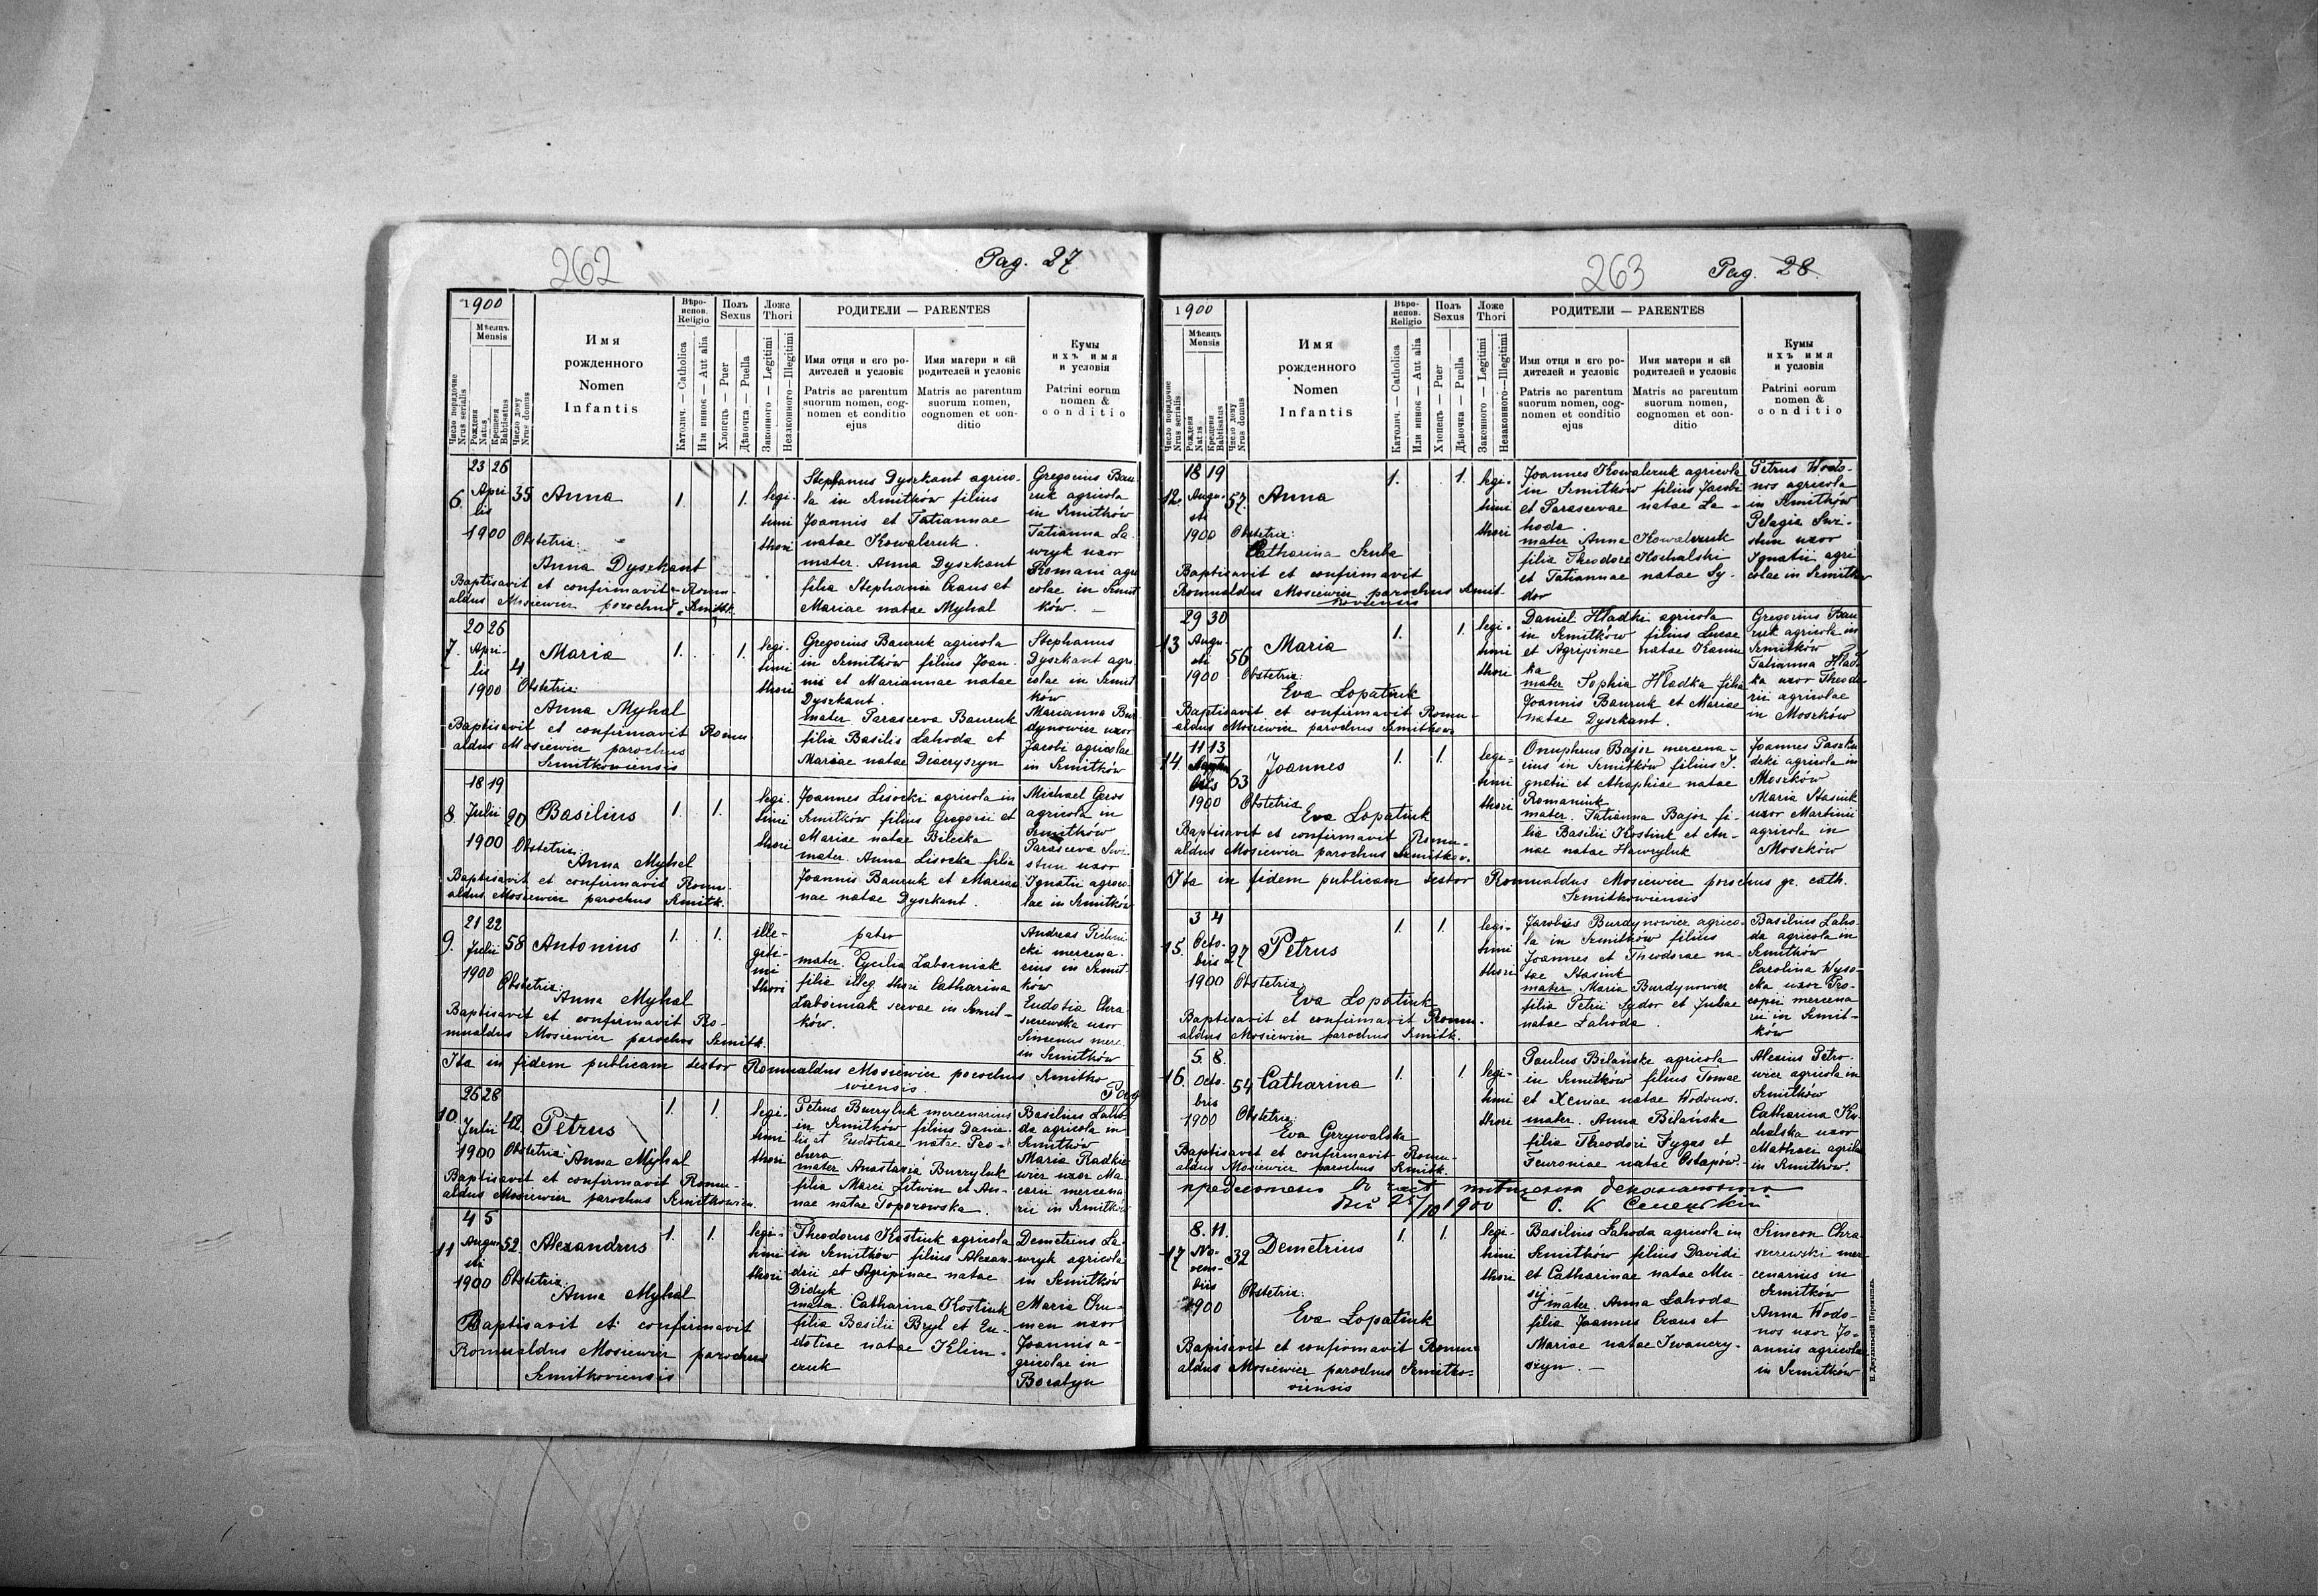 262
Pag. 27
1900
Мѣсяцъ
Mensis
Число порядочне
Nrus serialis
Рожденя
Natus
Крещеня
Babtisatus
Число дому
Nrus domus
Имя
рожденного
Nomen
Infantis
Вѣро-
испов.
Religio
Католич. — Catholica
Или инное — Aut alia
Полъ
Sexus
Хлопець — Puer
Дѣвочка — Puella
Ложе
Thori
Законного — Legitimi
Незаконного — Illegitimi
РОДИТЕЛИ — PARENTES
Имя отця и єго ро-
дителей и условіє
Patris ac parentum
suorum nomen, cog-
nomen et conditio
ejus
Имя матери и єй
родителей и условіє
Matris ac parentum
suorum nomen,
cognomen et con-
ditio
Кумы
ихъ имя
и условія
Patrini eorum
nomen &
conditio
23 26
6. Apri-
lis
1900
35 Anna
1. 1. legi-
timi
thori
Obstetrix:
Anna Dyszkant
Baptisavit et confirmavit Romu-
aldus Mosiewicz parochus Smitk.
Stephanus Dyszkant agrico-
la in Smitków filius
Joannis et Tatiannae
natae Kowalczuk.
mater. Anna Dyszkant
filia Stephanie Craus et
Mariae natae Myhal
Gregorius Bau-
ruk agricola
in Smitków
Tatianna La-
wryk uxor
Romani agri-
colae in Smit-
ków. —
20 26
7. Apri-
lis
1900
4 Maria
1. 1. legi-
timi
thori
Obstetrix:
Anna Myhal
Baptisavit et confirmavit Romu
aldus Mosiewicz parochus
Smitkoviensis
Gregorius Bauruk agricola
in Smitków filius Joan-
nis et Mariannae natae
Dyszkant.
mater. Parasceva Bauruk
filia Basilis Lahoda et
Mariae natae Diaczyszyn
Stephanus
Dyszkant agri-
colae in Smit
ków
Marianna Bur
dynowicz uxor
Jacobi agricolae
in Smitków
18 19
8. Julii
1900
20 Basilius
1. 1. legi-
timi
thori
Obstetrix:
Anna Myhal
Baptisavit et confirmavit Romu-
aldus Mosiewicz parochus Smitk.
Joannes Lisocki agricola in
Smitków filius Gregorii et
Mariae natae Bilecka
mater. Anna Lisocka filia
Joannis Bauruk et Marian
nae natae Dyszkant.
Michael Geros
agricola in
Smitków
Parasceva Swi-
stun uxor
Ignatii agrico-
lae in Smitków
21 22
9. Julii
1900
58 Antonius
1. 1. ille-
giti-
mi
thori
Obstetrix:
Anna Myhal
Baptisavit et confirmavit Ro-
mualdus Mosiewicz parochus Smitk.
pater
mater. Cycilia Laborniak
filia illeg. thori Catharina
Laborniak servae in Smit-
ków.
Andreas Prihni
cki mercena-
rius in Smit
ków
Eudotia Chra
szczewska uxor
Simenus merc.
in Smitków
Ita in fidem publicam testor Romualdus Mosiewicz parochus Smitko
wiensis
26 28
10. Julii
1900
42. Petrus
1. 1. legi-
timi
thori
Obstetrix: Anna Myhal
Baptisavit et confirmavit Romu-
aldus Mosiewicz parochus Smitkowien.
Petrus Buczyluk mercenarius
in Smitków filius Danie-
lis et Eudotiae natae Pro-
chera
mater Anastazia Buczyluk
filia Marci Litwin et An-
nae natae Toporowska.
Basilius Laho-
da agricola in
Smitków
Maria Radkie
wicz uxor Ma
carii mercena
rii in Smitków
4 5
11 Augu-
sti
1900
52. Alexandrus
1. 1. legi-
timi
thori
Obstetrix:
Anna Myhal
Baptisavit et confirmavit
Romualdus Mosiewicz parochus
Smitkoviensis
Theodorus Kostiuk agricola
in Smitków filius Alexan-
drii et Agripinae natae
Didyk
mater. Catharina Kostiuk
filia Basilii Bryl et Eu-
dotiae natae Klim-
czuk
Demetrius La-
wryk agricola
in Smitków
Maria Chu-
men uxor
Joannis a-
gricolae in
Boratyn
263
Pag. 28.
1900
Мѣсяцъ
Mensis
Число порядочне
Nrus serialis
Рожденя
Natus
Крещеня
Babtisatus
Число дому
Nrus domus
Имя
рожденного
Nomen
Infantis
Вѣро-
испов.
Religio
Католич. — Catholica
Или инное — Aut alia
Полъ
Sexus
Хлопець — Puer
Дѣвочка — Puella
Ложе
Thori
Законного — Legitimi
Незаконного — Illegitimi
РОДИТЕЛИ — PARENTES
Имя отця и єго ро-
дителей и условіє
Patris ac parentum
suorum nomen, cog-
nomen et conditio
ejus
Имя матери и єй
родителей и условіє
Matris ac parentum
suorum nomen,
cognomen et con-
ditio
Кумы
ихъ имя
и условія
Patrini eorum
nomen &
conditio
18 19
12. Augu-
sti
1900
57. Anna
1. 1. legi-
timi
thori
Obstetrix:
Catharina Szuba
Baptisavit et confirmavit
Romualdus Mosiewicz parochus Smit-
koviensis
Joannes Kowalczuk agricola
in Smitków filius Jacobi
et Parascevae natae La-
hoda
mater Anna Kowalczuk
filia Theodore Kochalski
et Tatiannae natae Sy-
dor
Petrus Wodo-
nos agricola
in Smitków
Pelagia Swi-
stun uxor
Ignatii agri-
colae in Smitków
29 30
13 Augu-
sti
1900
56 Maria
1. 1. legi-
timi
thori
Obstetrix:
Eva Lopatiuk
Baptisavit et confirmavit Romu-
aldus Mosiewicz parochus Smitkow
Daniel Hładki agricola
in Smitków filius Lucae
et Agripinae natae Kamin
ka
mater Sophia Hładka filia
Joannis Bauruk et Mariae
natae Dyszkant.
Gregorius Bau
ruk agricola in
Smitków
Tatianna Hład
ka uxor Theodo
rii agricolae
in Moszków
11 13
14.
1900
63 Joannes
1. 1. legi-
timi
thori
Obstetrix
Eva Lopatiuk
Baptisavit et confirmavit Romu-
aldus Mosiewicz parochus Smitkow.
Onuphrus Bajor mercena-
rius in Smitków filius I-
gnatii et Ahaphiae natae
Romaniuk
mater. Tatianna Bajor fi-
lia Basilii Kostiuk et An-
nae natae Hawryluk
Joannes Paszku
decki agricola in
Moszków
Maria Stasiuk
uxor Martinii
agricola in
Moszków
Ita in fidem publicam testor Romualdus Mosiewicz parochus gr. cath.
Smitkowiensis
3 4
15. Octo-
bris
1900
27 Petrus
1. 1. legi-
timi
thori
Obstetrix
Eva Lopatiuk
Baptisavit et confirmavit Romu-
aldus Mosiewicz parochus Smitk.
Jacobus Burdynowicz agrico-
la in Smitków filius
Joannes et Theodorae na-
tae Stasiuk
mater Maria Burdynowicz
filia Petrii Sydor et Julae
natae Lahoda.
Basilius Laho-
da agricola in
Smitków
Carolina Wyso-
cka uxor Pro-
copii mercena
rii in Smit-
ków
5. 8.
16. Octo-
bris
1900
54 Catharina
1. 1 legi-
timi
thori
Obstetrix:
Eva Grzywalska
Baptisavit et confirmavit Romu-
aldus Mosiewicz parochus Smitk.
Paulus Bilańske agricola
in Smitków filius Tomae
et Xeniae natae Wodonos.
mater. Anna Bilańska
filia Theodori Fygas et
Feuroniae natae Ostapów.
Alexius Petro-
wicz agricola in
Smitków
Catharina Ko-
chalska uxor
Mathaei agricola
in Smitków.
25/10 1900
8. 11.
17 No-
vem-
bris
1900
32 Demetrius
1. 1. legi-
timi
thori
Obstetrix:
Eva Lopatiuk
Baptisavit et confirmavit Romu-
aldus Mosiewicz parochus Smitko-
viensis
Basilius Lahoda agricola in
Smitków filius Davidi
et Catharinae natae Mu-
sij mater. Anna Lahoda
filia Joannis Craus et
Mariae natae Iwanczy-
szyn. —
Simeon Chra
szczewski mer-
cenarius in
Smitków
Anna Wodo-
nos uxor Jo-
annis agricolae
in Smitków